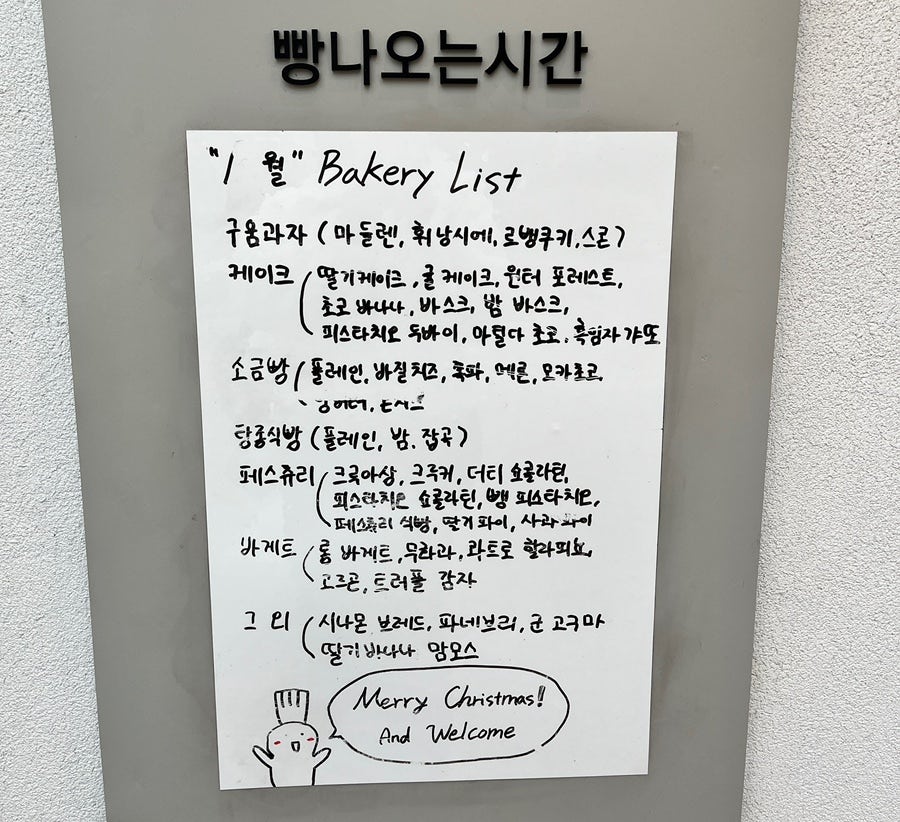 빵나오는시간
"1 월" Bakery List
구움과자 ( 마들렌, 휘낭시에, 로뱅쿠키, 스콘 )
케이크 ( 딸기케이크, 귤 케이크, 윈터 포레스트,
초코 바나나, 바스크, 밤 바스크,
피스타치오 두바이, 마틸다 초코, 흑임자 갸또
소금빵 ( 플레인, 바질치즈, 흑파, 메론, 모카초코,
탕종식빵 ( 플레인, 밤, 잡곡 )
페스츄리 ( 크로와상, 크루키, 더티 쇼콜라틴,
피스타치오 쇼콜라틴, 뺑 피스타치오,
페스츄리 식빵, 딸기파이, 사과파이
바게트 ( 롱 바게트, 무화과, 콰트로 할라피뇨,
고르곤, 트러플 감자
그 외 ( 시나몬 브레드, 파네브리, 군 고구마
딸기바나나 맘모스
Merry Christmas!!
And Welcome